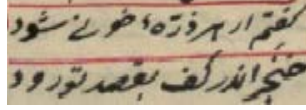 نفتم ار هر ذرّه خونے شود
خنجر اندر کف بقصد تو رود